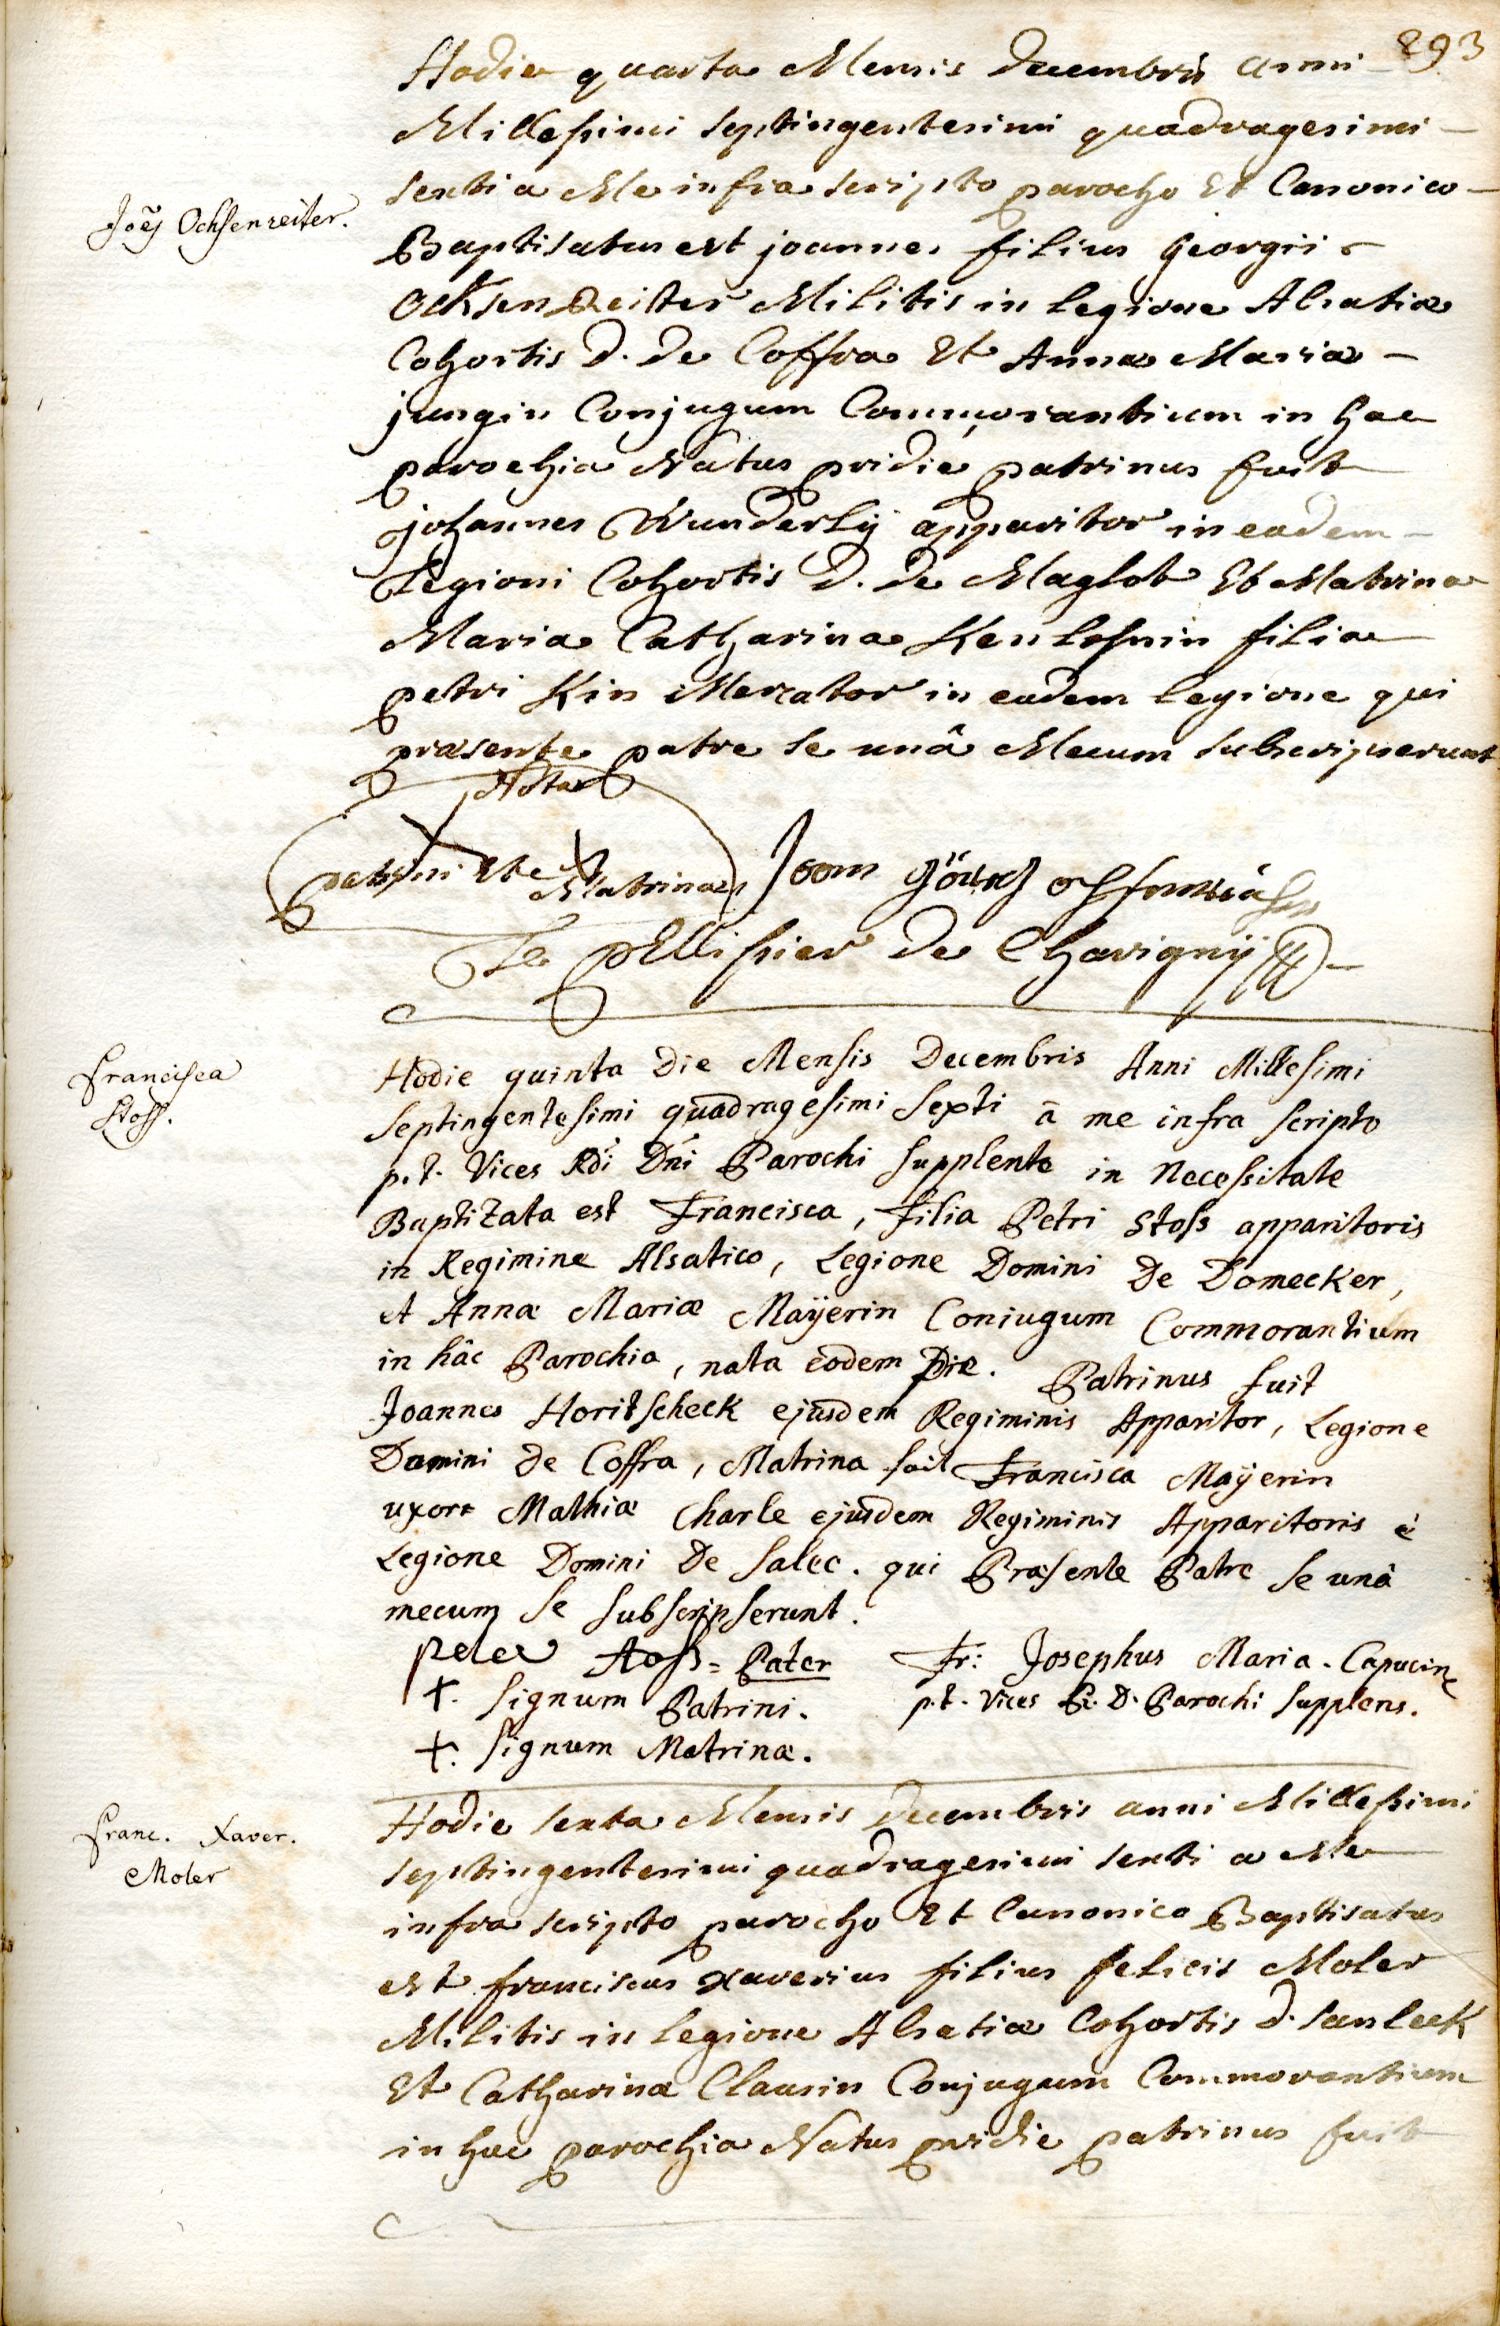 293
Hodie quarta Mensis Decembris anni
Millesimi septingentesimi quadragesimi
sexti a Me infra scripto parocho Et Canonico
Joẽs Ochsenreiter.
Baptisatus est joannes filius Georgii
Ochsen Reitter Militis in legione Alsatiæ
Cohortis D. de Coffra Et Annæ Mariæ
jungin Conjugum Commorantium in hac
parochia Natus pridie patrinus fuit
johannes Wunderlÿ apparitor in eadem
Legioni Cohortis D. de Maglot Et Matrina
Maria Catharina filia
petri Kin Mercator in eadem legione qui
præsente patre se unâ Mecum subscripserunt
Nota
patrini Et Matrinæ
Le pEllissier De Chavignÿ
Francisca
Stoss.
Hodie quinta Die Mensis Decembris Anni Millesimi
Septingentesimi quadragesimi Sexti â me infra scripto
p.t. Vices Rdi Dni Parochi supplente in Necessitate
Baptizata est Francisca, filia Petri Stoss apparitoris
in Regimine Alsatico, Legione Domini De Domecker,
et Annæ Mariæ Maÿerin Coniugum Commorantium
in hâc Parochia, nata eodem Die. Patrinus fuit
Joannes Horitscheck ejusdem Regiminis Apparitor, Legione
Domini de Coffra, Matrina fuit Francisca Maÿerin
uxore Mathiæ Charle ejusdem Regiminis Apparitoris è
Legione Domini De Salec. qui Præsente Patre se unâ
mecum se subscripserunt.
Peter Stoss = Pater Fr: Josephus Maria. Capucin
+. Signum Patrini. p.t. Vices R. D. Parochi Supplens.
+. Signum Matrinæ.
Franc. Xaver.
Moler
Hodie sexta Mensis Decembris anni Millesimi
septingentesimi quadragesimi sexti a Me
infra scripto parocho Et Canonico Baptisatus
est franciscus xaverius filius felicis Moler
Militis in legione Alsatiæ Cohortis D. Sanleck
Et Catharinæ Clausin Conjugum Commorantium
in hac parochia Natus pridie patrinus fuit